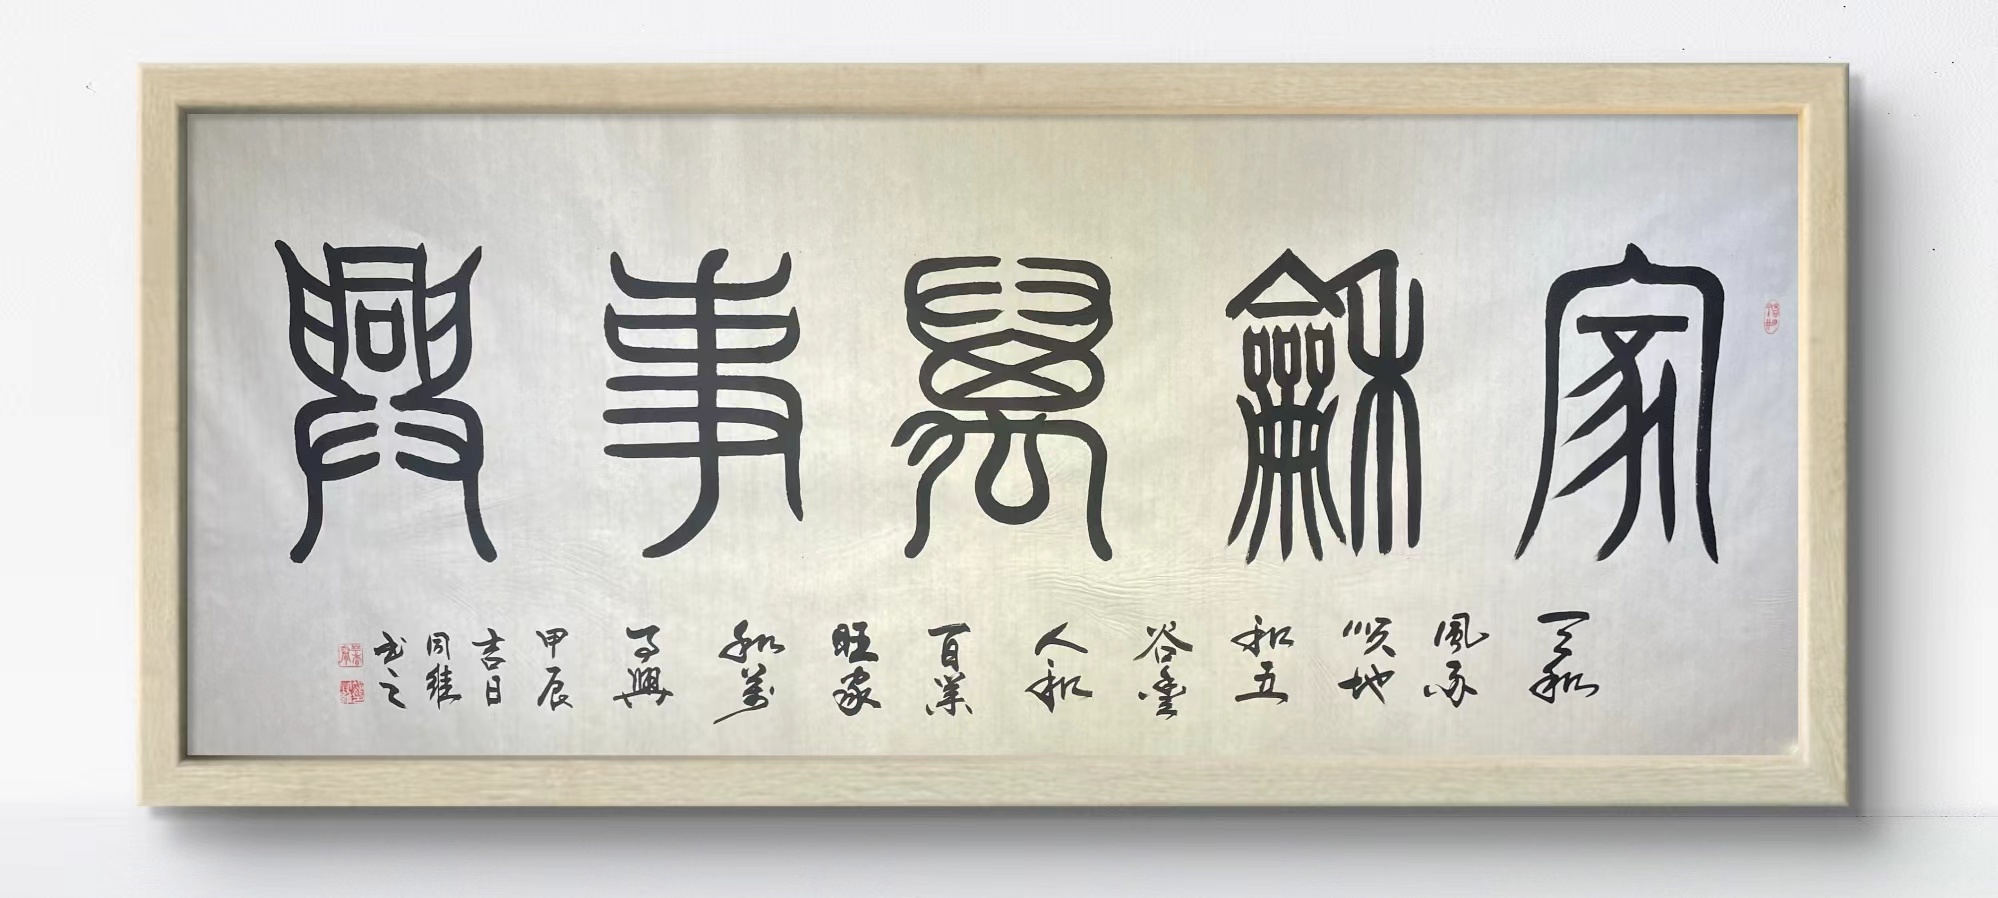 家龢萬事興
天和
風雨
順地
和五
谷豐
人和
百業
旺家
和萬
事興
甲辰
吉日
周維
書之